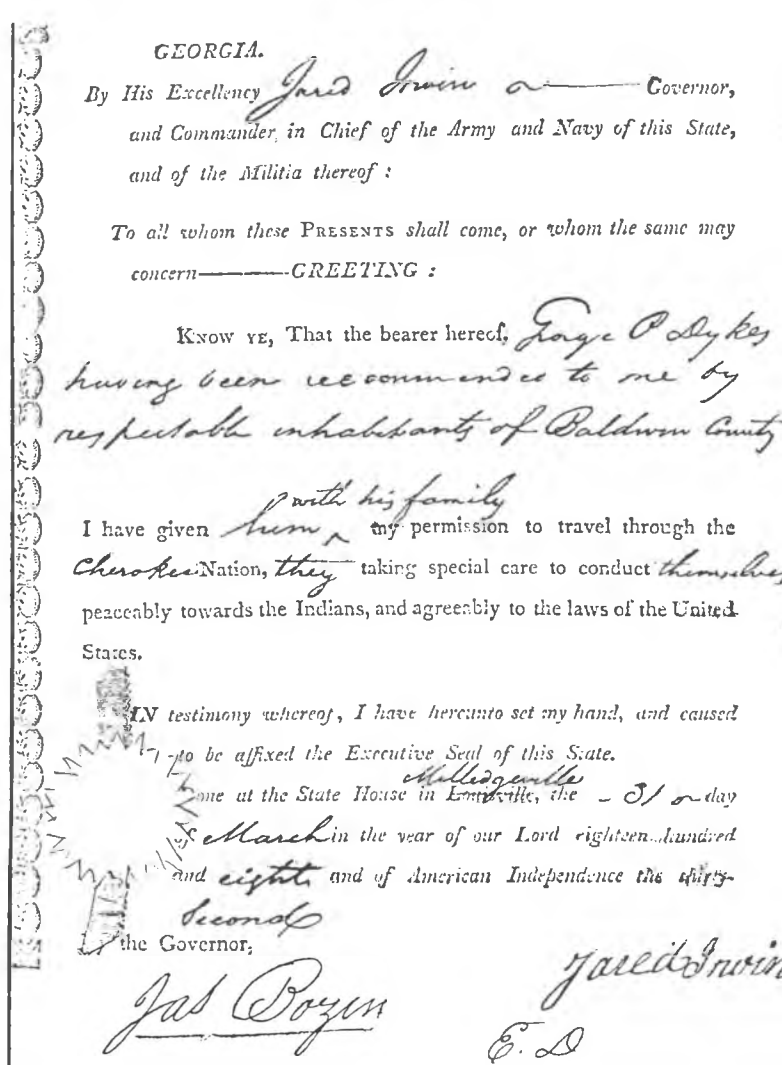 GEORGIA.
By His Excellency Jared Irwin Governor,
and Commander in Chief of the Army and Navy of this State,
and of the Militia thereof :
To all whom these PRESENTS shall come, or whom the same may
concern———GREETING :
KNOW YE, That the bearer hereof, George P Dykes
having been recommended to me by
respectable inhabitants of Baldwin County
with his family
I have given him ‸ my permission to travel through the
Cherokee Nation, they taking special care to conduct themselves
peaceably towards the Indians, and agreeably to the laws of the United
States.
IN testimony whereof, I have hereunto set my hand, and caused
to be affixed the Executive Seal of this State.
Milledgeville
Done at the State House in Louisville, the 31 day
of March in the year of our Lord eighteen hundred
and eight and of American Independence the thirty-
Second
By the Governor,
Jared Irwin
Jas Bozen
E. D